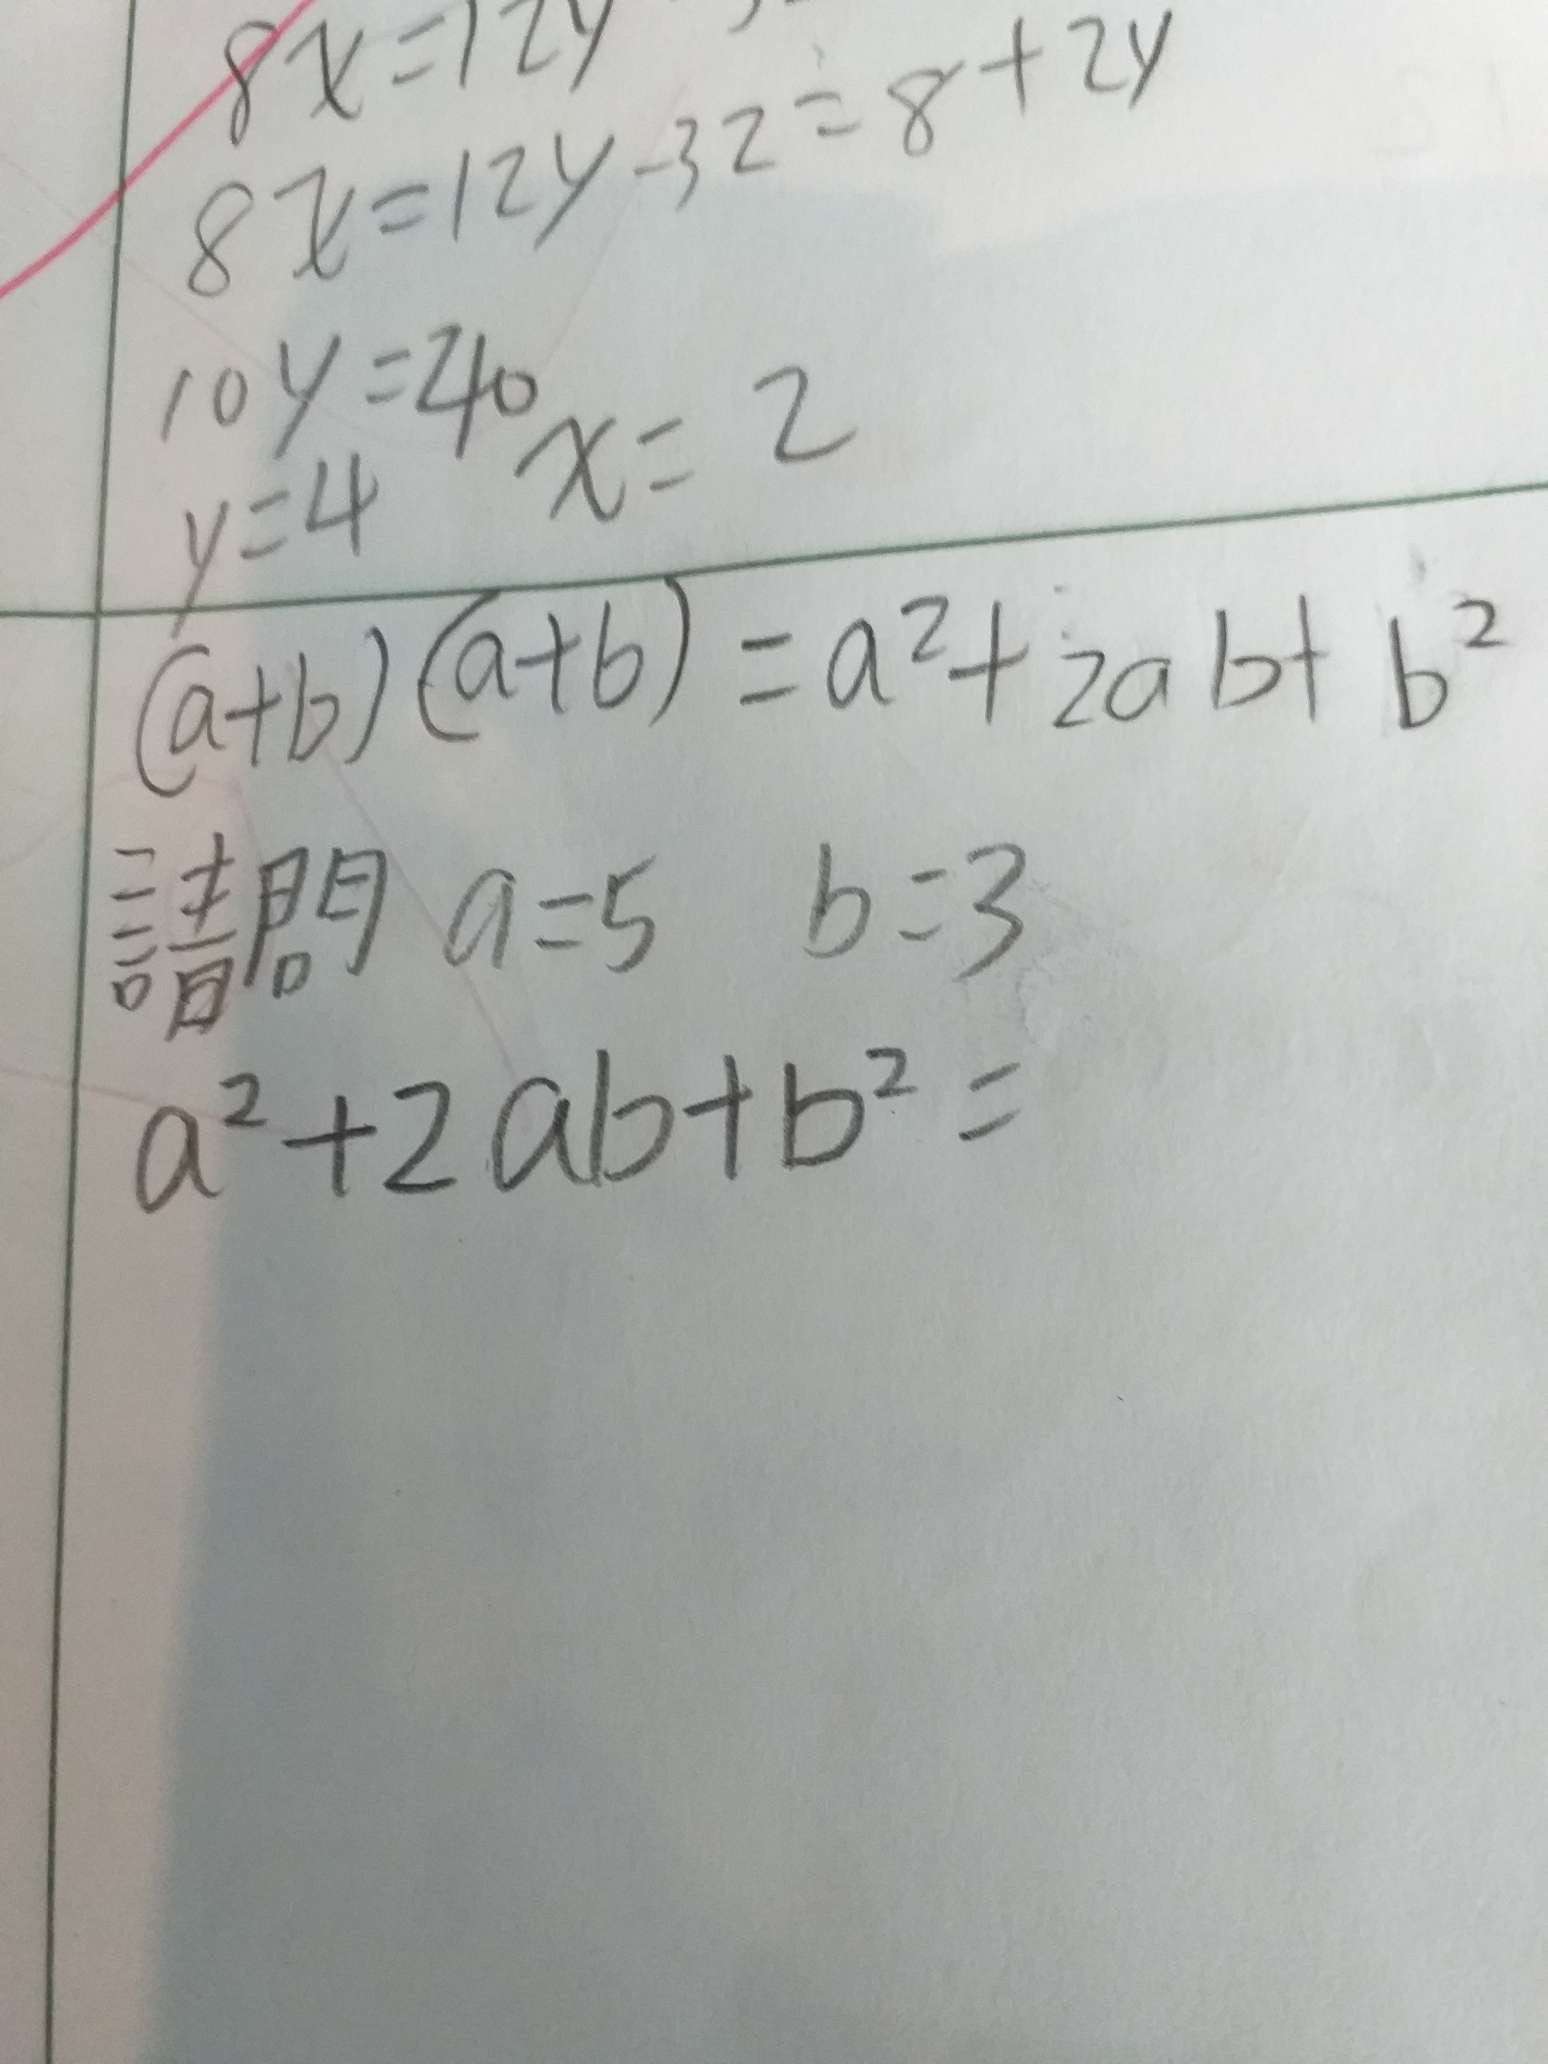 8x=12y
8x=12y-32=8+2y
10y=40 x=2
y=4
(a+b)(a+b)=a²+2ab+b²
請問 a=5 b=3
a²+2ab+b²=